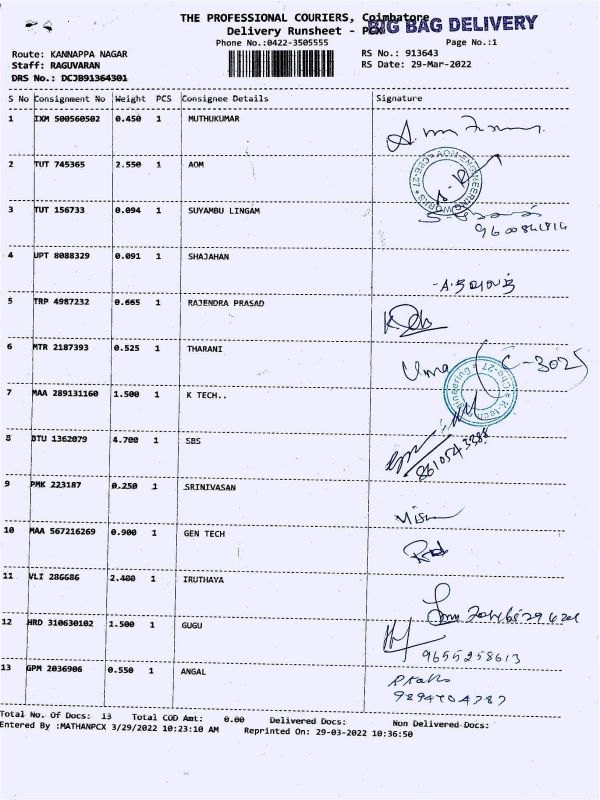 THE PROFESSIONAL COURIERS, Coimbatore
BIG BAG DELIVERY
Delivery Runsheet - PCX
Phone No.:0422-3505555
Page No.:1
Route: KANNAPPA NAGAR
RS No.: 913643
Staff: RAGUVARAN
RS Date: 29-Mar-2022
DRS No.: DCJB91364301
S No Consignment No Weight PCS Consignee Details Signature
1 IXM 500560502 0.450 1 MUTHUKUMAR
2 TUT 745365 2.550 1 AOM
3 TUT 156733 0.094 1 SUYAMBU LINGAM
4 UPT 8088329 0.091 1 SHAJAHAN
5 TRP 4987232 0.665 1 RAJENDRA PRASAD
6 MTR 2187393 0.525 1 THARANI Uma C-302
7 MAA 289131160 1.500 1 K TECH..
8 BTU 1362079 4.700 1 SBS
9 PMK 223187 0.250 1 SRINIVASAN
10 MAA 567216269 0.900 1 GEN TECH
11 VLI 286686 2.400 1 IRUTHAYA
12 HRD 310630102 1.500 1 GUGU
9655258613
13 GPM 2036906 0.550 1 ANGAL
Total No. Of Docs: 13 Total COD Amt: 0.00 Delivered Docs: Non Delivered Docs:
Entered By :MATHANPCX 3/29/2022 10:23:10 AM Reprinted On: 29-03-2022 10:36:50